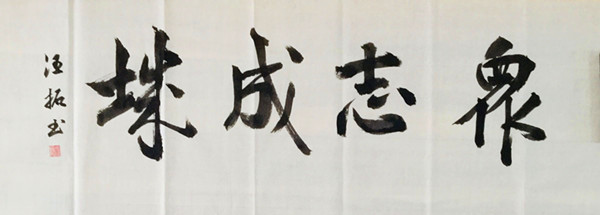 衆志成城
汪拓书